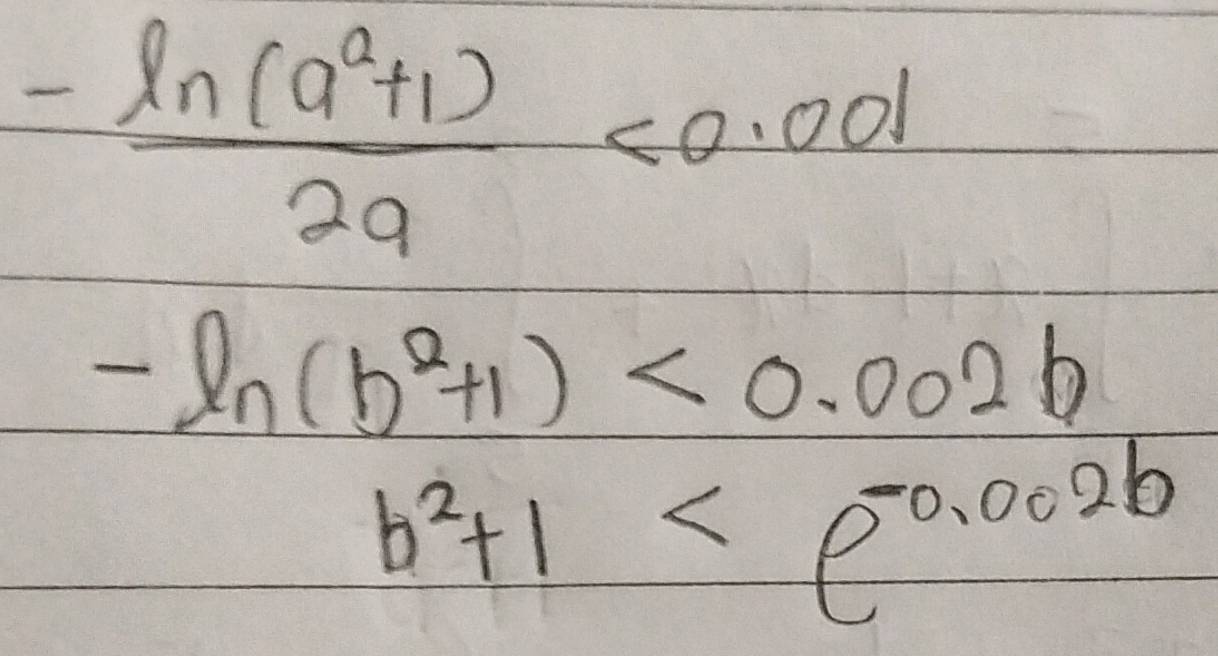 - ln(a²+1) / 2a < 0.001
- ln(b²+1) < 0.002b
b²+1 < e^-0.002b